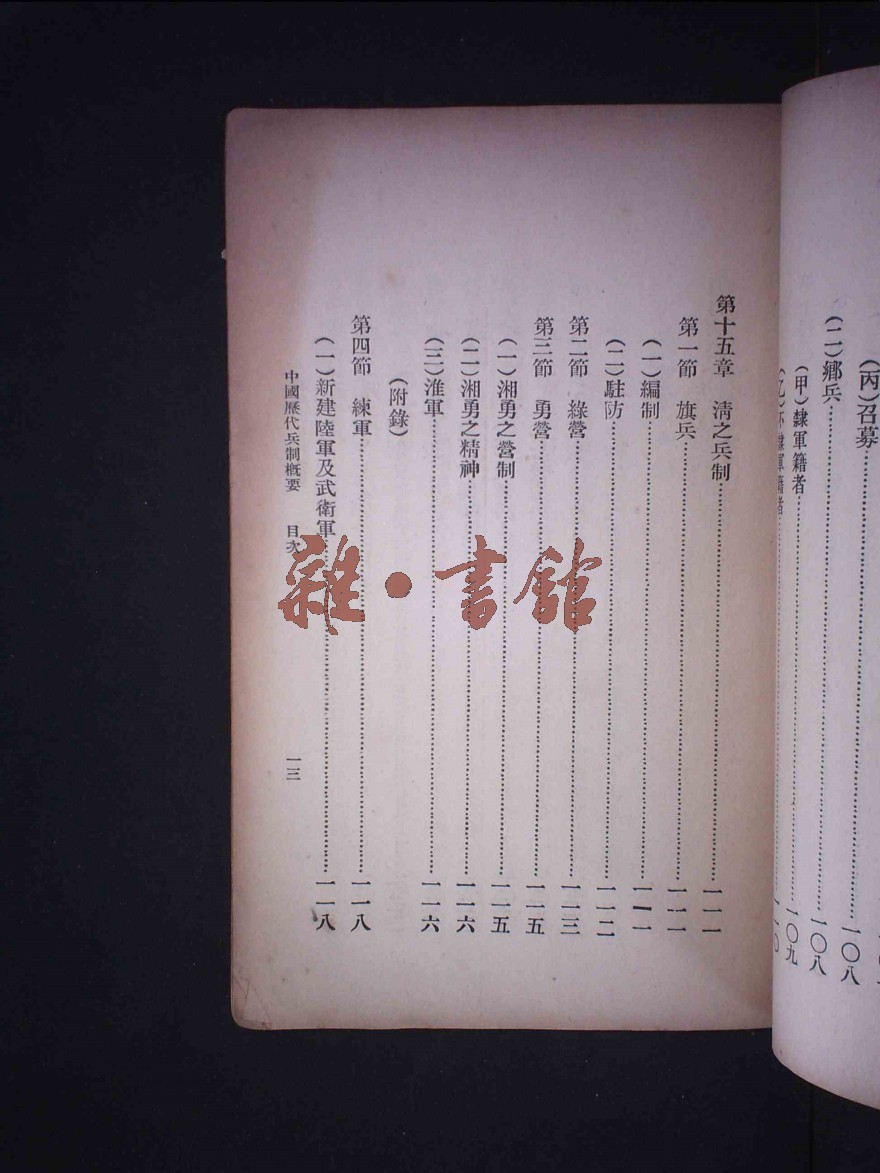 (丙)召募
(二)鄉兵…………一〇八
(甲)隸軍籍者…………一〇八
(乙)不隸軍籍者…………一〇九
一一〇
第十五章　清之兵制…………一一一
第一節　旗兵…………一一一
(一)編制…………一一一
(二)駐防…………一一二
第二節　綠營…………一一三
第三節　勇營…………一一五
(一)湘勇之營制…………一一五
(二)湘勇之精神…………一一六
(三)淮軍…………一一六
(附錄)
第四節　練軍…………一一八
(一)新建陸軍及武衛軍…………一一八
中國歷代兵制概要　目次　一三
雜·書館